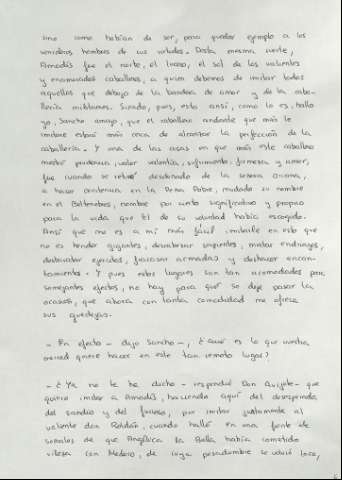 sino como habían de ser, para quedar ejemplo a los
venideros hombres de sus virtudes. Desta mesma suerte,
Amadís fue el norte, el lucero, el sol de los valientes
y enamorados caballeros, a quien debemos de imitar todos
aquellos que debajo de la bandera de amor y de la caba-
llería militamos. Siendo, pues, esto ansí, como lo es, hallo
yo, Sancho amigo, que el caballero andante que más le
imitare estará más cerca de alcanzar la perfección de la
caballería. Y una de las cosas en que más este caballero
mostró prudencia, valor, valentía, sufrimiento, firmeza y amor,
fue cuando se retiró, desdeñado de la señora Oriana,
a hacer penitencia en la Peña Pobre, mudado su nombre
en el Beltenebros, nombre por cierto significativo y propio
para la vida que él de su voluntad había escogido.
Ansí que me es a mí más fácil imitarle en esto que
no es hender gigantes, descabezar serpientes, matar endriagos,
desbaratar ejércitos, fracasar armadas y deshacer encan-
tamientos. Y pues estos lugares son tan acomodados para
semejantes efectos, no hay para qué se deje pasar la
ocasión, que ahora con tanta comodidad me ofrece
sus guedejas.
- En efecto - dijo Sancho -, ¿qué es lo que vuestra
merced quiere hacer en este tan remoto lugar?
- ¿Ya no te he dicho - respondió Don Quijote - que
quiero imitar a Amadís, haciendo aquí del desesperado,
del sandio y del furioso, por imitar juntamente al
valiente don Roldán, cuando halló en una fuente las
señales de que Angélica la Bella había cometido
vileza con Medoro, de cuya pesadumbre se volvió loco,